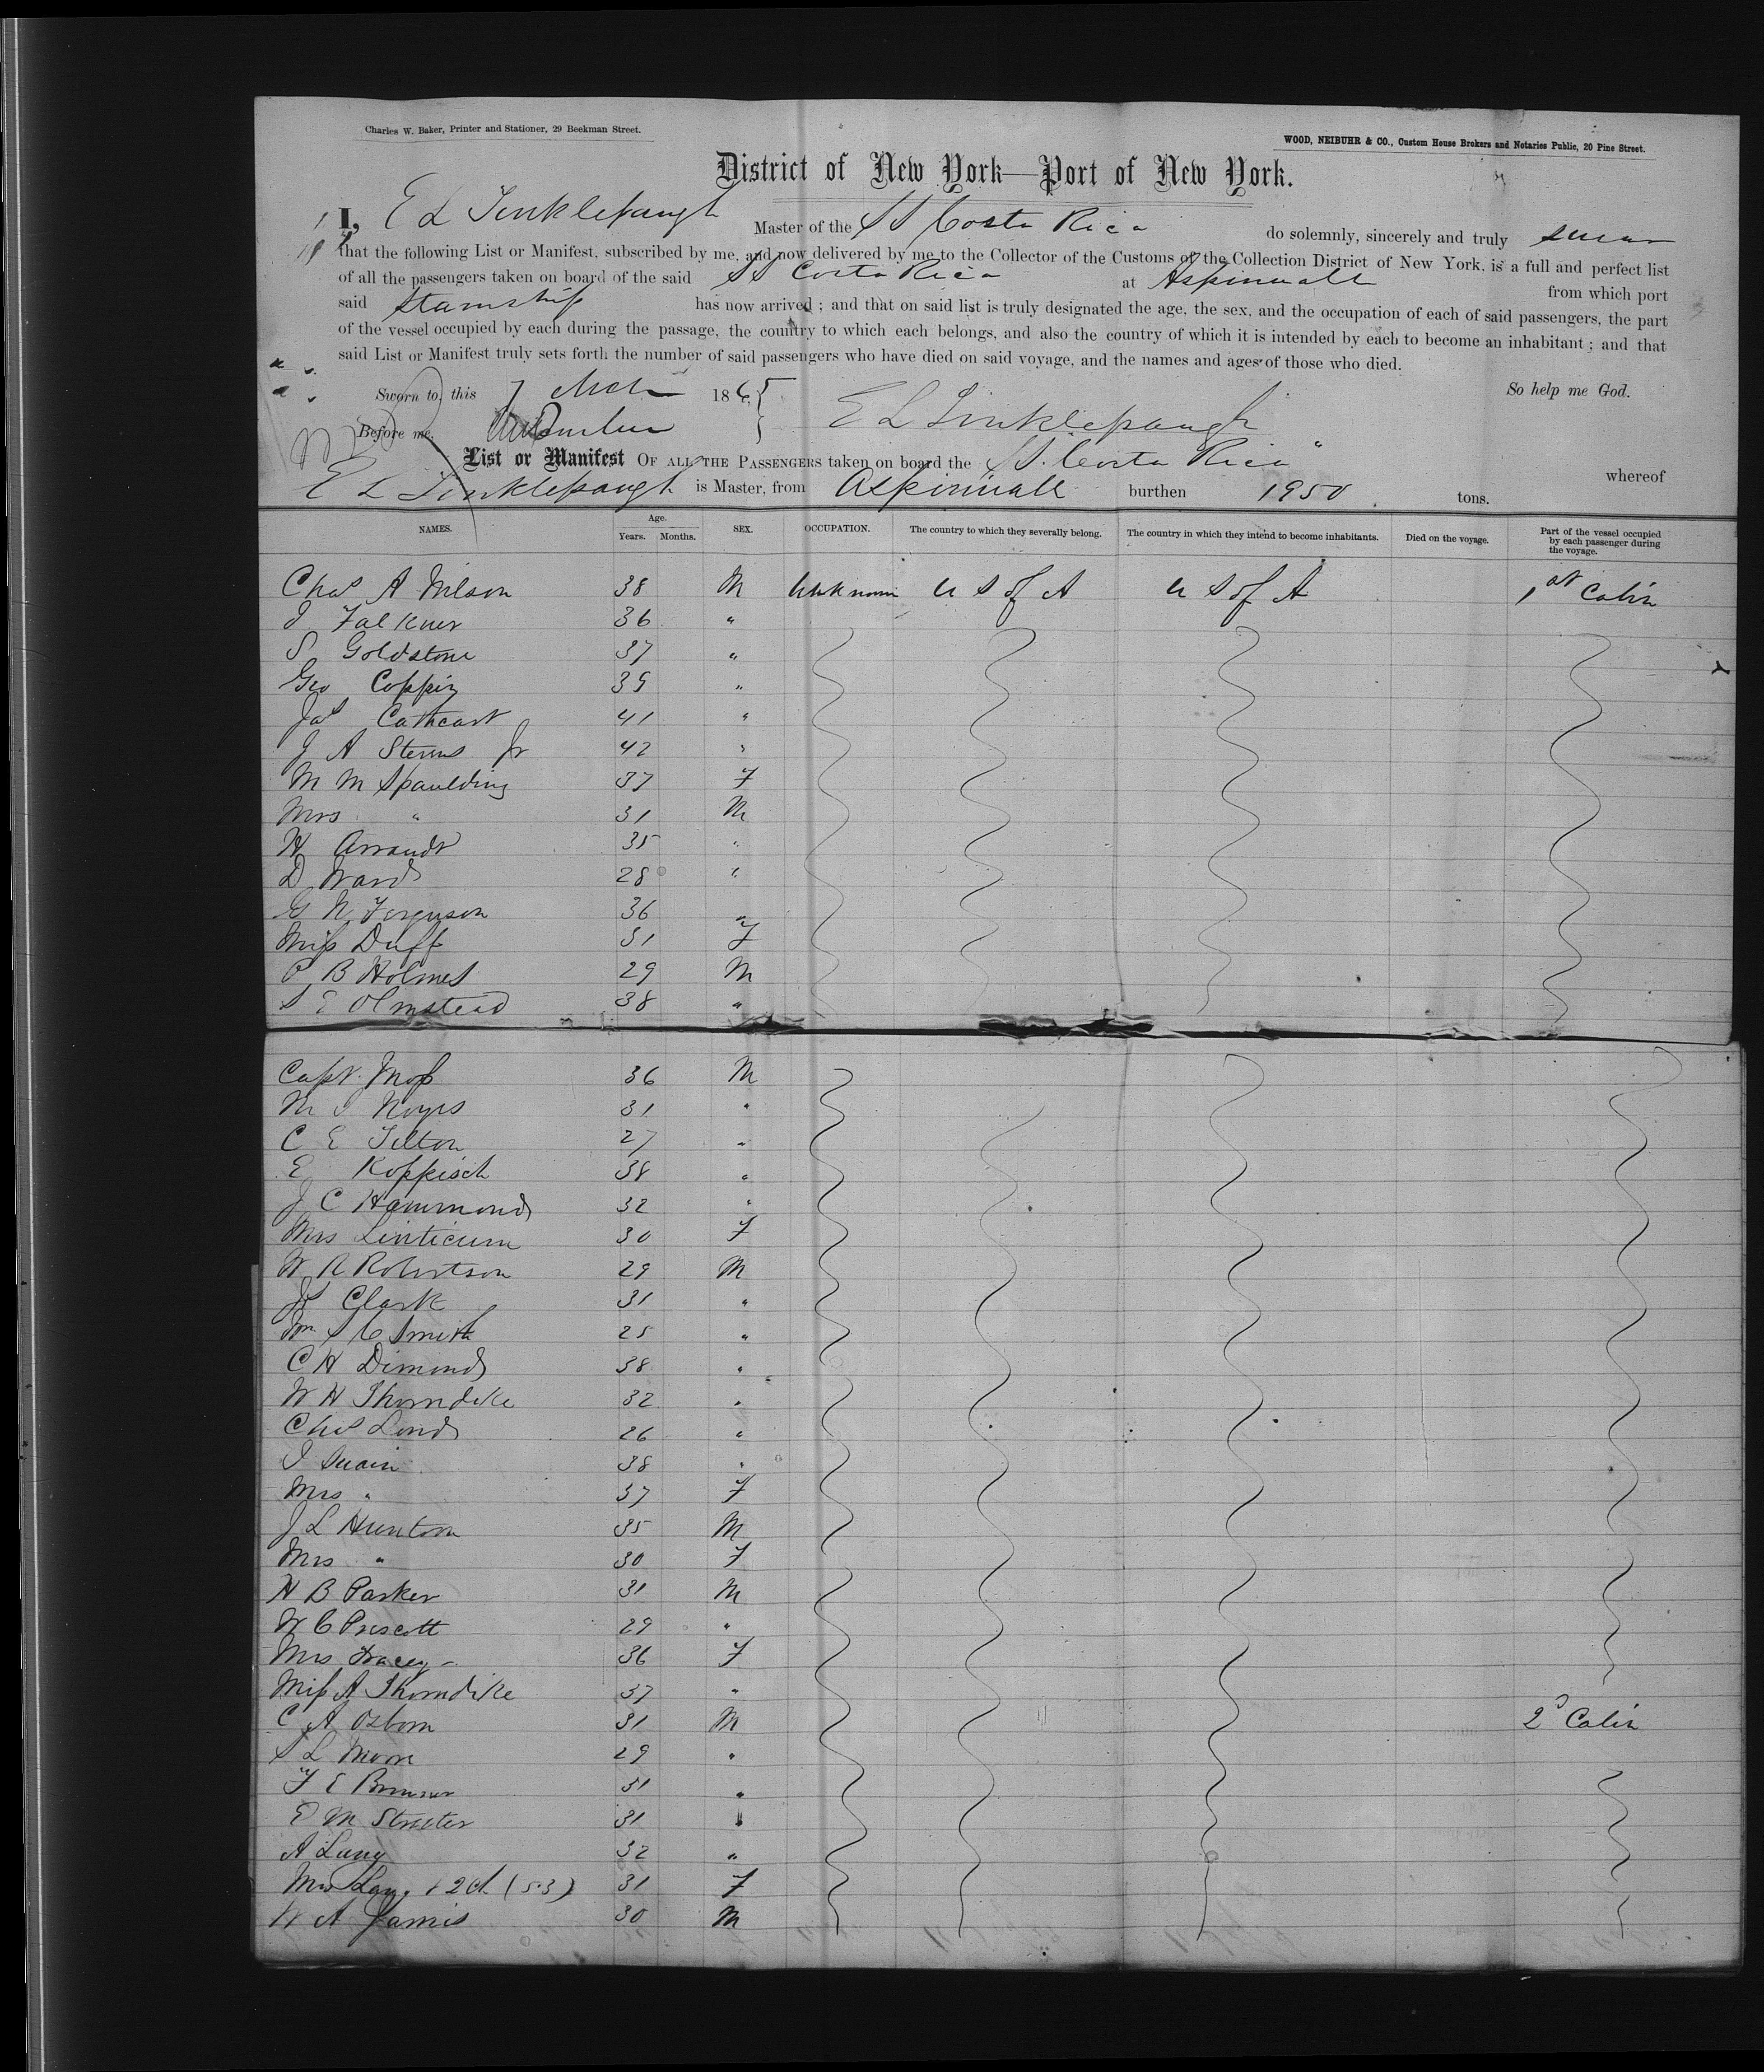 Charles W. Baker, Printer and Stationer, 29 Beekman Street.
WOOD, NEIBUHR & CO., Custom House Brokers and Notaries Public, 20 Pine Street.
District of New York—Port of New York.
I, E L Tinklepaugh Master of the SS Costa Rica do solemnly, sincerely and truly swear
that the following List or Manifest, subscribed by me, and now delivered by me to the Collector of the Customs of the Collection District of New York, is a full and perfect list
of all the passengers taken on board of the said SS Costa Rica at Aspinwall from which port
said Steamship has now arrived; and that on said list is truly designated the age, the sex, and the occupation of each of said passengers, the part
of the vessel occupied by each during the passage, the country to which each belongs, and also the country of which it is intended by each to become an inhabitant; and that
said List or Manifest truly sets forth the number of said passengers who have died on said voyage, and the names and ages of those who died.
Sworn to, this 7 Mch 1865 So help me God.
Before me, E L Tinklepaugh
List or Manifest OF ALL THE PASSENGERS taken on board the SS. Costa Rica whereof
E L Tinklepaugh is Master, from Aspinwall burthen 1950 tons.
NAMES. Age. Years. Months. SEX. OCCUPATION. The country to which they severally belong. The country in which they intend to become inhabitants. Died on the voyage. Part of the vessel occupied by each passenger during the voyage.
Chas A Wilson 38 M Unknown U S of A U S of A 1st Cabin
J Falkner 36 "
S Goldstone 37 "
Geo Coppin 39 "
Jas Cathcart 41 "
J A Sterns Jr 42 "
M M Spaulding 37 F
Mrs " 31 M
H Arrandt 35 "
D Ward 28 "
G N Ferguson 36 "
Miss Duff 31 F
P B Holmes 29 M
S E Olmstead 38 "
Capt. Moss 36 M
M I Noyes 31 "
C E Tilton 27 "
E Koppisch 38 "
J C Hammond 32 "
Mrs Linticum 30 F
W R Robertson 29 M
Clark 31 "
Wm S C Smith 25 "
C H Dimond 38 "
W H Thorndike 32 "
Chas Lond 26 "
I Swain 38 "
Mrs " 37 F
J L Huntoon 35 M
Mrs " 30 F
H B Parker 31 M
W C Prescott 29 "
Mrs Tracey 36 F
Miss A Thorndike 37 "
C A Osborn 31 M 2d Cabin
S L Moore 29 "
F E 31 "
E M Streeter 31 "
A Lang 32 "
Mrs Lang & 2 ch (5.3) 31 F
W A Jarvis 30 M